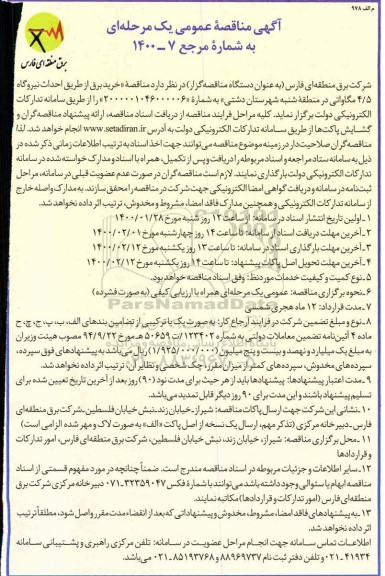 م الف ۹۷۸
آگهی مناقصهٔ عمومی یک مرحله‌ای
به شمارهٔ مرجع ۷ – ۱۴۰۰
برق منطقه‌ای فارس
شرکت برق منطقه‌ای فارس (به عنوان دستگاه مناقصه‌گزار) در نظر دارد مناقصهٔ «خرید برق از طریق احداث نیروگاه
۴/۵ مگاواتی در منطقهٔ شنبه شهرستان دشتی» به شمارهٔ «۲۰۰۰۰۰۱۰۴۶۰۰۰۰۰۶» را از طریق سامانه تدارکات
الکترونیکی دولت برگزار نماید. کلیه مراحل فرایند مناقصه از دریافت اسناد مناقصه، ارائه پیشنهاد مناقصه‌گران و
گشایش پاکت‌ها از طریق سامانه تدارکات الکترونیکی دولت به آدرس www.setadiran.ir انجام خواهد شد. لذا
مناقصه‌گران صلاحیت‌دار در زمینه موضوع مناقصه می‌توانند جهت اخذ اسناد به ترتیب اطلاعات زمانی ذکر شده در
ذیل به سامانه ستاد مراجعه و اسناد مربوطه را دریافت و پس از تکمیل، همراه با اسناد و مدارک خواسته شده در سامانه
تدارکات الکترونیکی دولت بارگذاری نمایند. لازم است مناقصه‌گران در صورت عدم عضویت قبلی در سامانه، مراحل
ثبت‌نام در سامانه و دریافت گواهی امضا الکترونیکی جهت شرکت در مناقصه را محقق سازند. به مدارک واصله خارج
از سامانه تدارکات الکترونیکی و همچنین مدارک فاقد امضا، مشروط و مخدوش، ترتیب اثر داده نخواهد شد.
۱ـ اولین تاریخ انتشار اسناد در سامانه: از ساعت ۱۳ روز شنبه مورخ ۱۴۰۰/۰۱/۲۸
۲ـ آخرین مهلت دریافت اسناد از سامانه: تا ساعت ۱۴ روز چهارشنبه مورخ ۱۴۰۰/۰۲/۰۱
۳ـ آخرین مهلت بارگذاری اسناد در سامانه: تا ساعت ۱۳ روز یکشنبه مورخ ۱۴۰۰/۰۲/۱۲
۴ـ آخرین مهلت تحویل اصل پاکات پیشنهاد: تا ساعت ۱۴ روز یکشنبه مورخ ۱۴۰۰/۰۲/۱۲
۵ـ نوع کمیت و کیفیت خدمات مورد نظر: وفق اسناد مناقصه خواهد بود.
۶ـ نحوه برگزاری مناقصه: عمومی یک مرحله‌ای همراه با ارزیابی کیفی (به صورت فشرده)
۷ـ مدت قرارداد: ۱۲ ماه هجری شمسی
۸ـ نوع و مبلغ تضمین شرکت در فرآیند ارجاع کار: به صورت یک یا ترکیبی از تضامین بندهای الف، ب، پ، ج، چ، ح
ماده ۴ آئین‌نامه تضمین معاملات دولتی به شماره ۱۲۳۴۰۲/ت ۵۰۶۵۹ هـ مورخ ۹۴/۹/۲۲ مصوب هیئت وزیران
به مبلغ یک میلیارد و نهصد و بیست و پنج میلیون (۱/۹۲۵/۰۰۰/۰۰۰) ریال می‌باشد به پیشنهادهای فوق سپرده،
سپرده‌های مخدوش، سپرده‌های کمتر از میزان مقرر، چک شخصی و نظایر آن، ترتیب اثر داده نخواهد شد.
۹ـ مدت اعتبار پیشنهادها: پیشنهادها باید از هر حیث برای مدت نود (۹۰) روز بعد از آخرین تاریخ تعیین شده برای
تسلیم پیشنهاد باشند و این مدت برای ۹۰ روز دیگر قابل تمدید می‌باشد.
۱۰ـ نشانی این شرکت جهت ارسال پاکات مناقصه: شیراز ـ خیابان زند ـ نبش خیابان فلسطین ـ شرکت برق منطقه‌ای
فارس ـ دبیرخانه مرکزی (تذکر مهم، ارسال یک نسخه از اصل پاکت «الف» به صورت لاک و مهر شده الزامی است)
۱۱ـ محل برگزاری مناقصه: شیراز، خیابان زند، نبش خیابان فلسطین، شرکت برق منطقه‌ای فارس، امور تدارکات
و قراردادها
۱۲ـ سایر اطلاعات و جزئیات مربوطه در اسناد مناقصه مندرج است. ضمناً چنانچه در مورد مفهوم قسمتی از اسناد
مناقصه ابهام یا سئوالی وجود داشته باشد می‌توانند با شمارهٔ فکس ۳۲۳۵۹۰۴۷ـ۰۷۱ دبیرخانه مرکزی شرکت برق
منطقه‌ای فارس (امور تدارکات و قراردادها) مکاتبه نمایند.
۱۳ـ به پیشنهادهای فاقد امضا، مشروط، مخدوش و پیشنهاداتی که بعد از انقضاء مدت مقرر واصل شود، مطلقاً ترتیب
اثر داده نخواهد شد.
اطلاعات تماس سامانه جهت انجام مراحل عضویت در سامانه: تلفن مرکزی راهبری و پشتیبانی سامانه
۴۱۹۳۴ـ۰۲۱ و تلفن دفتر ثبت نام ۸۸۹۶۹۷۳۷ و ۸۵۱۹۳۷۶۸ـ۰۲۱ می‌باشد.